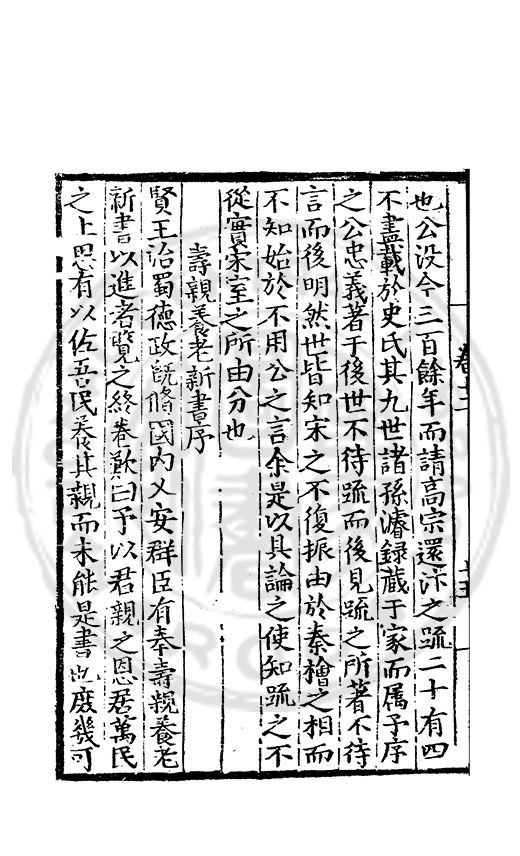 也公没今三百餘年而請高宗還汴之疏二十有四
不盡載於史氏其九世諸孫濬録藏于家而属予序
之公忠義著于後世不待疏而後見疏之所著不待
言而後明然世皆知宋之不復振由於秦檜之相而
不知始於不用公之言余是以具論之使知疏之不
從實宋室之所由分也
壽親養老新書序
賢王治蜀德政旣脩國内乂安群臣有奉壽親養老
新書以進者覽之終卷歎曰予以君親之恩居萬民
之上思有以佐吾民養其親而未能是書也庶幾可